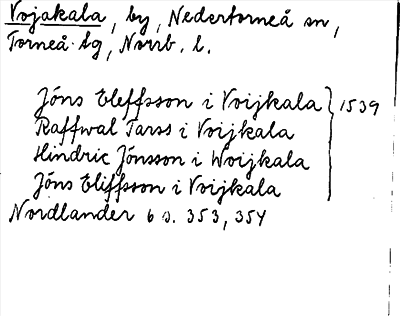 Vojakala, by, Nedertorneå sn,
Torneå tg, Norrb. l.
Jöns Eleffsson i Voijkala } 1539
Raffwal Tarss i Voijkala
Hindric Jönsson i Woijkala
Jöns Eliffsson i Voijkala
Nordlander 6 s. 353, 354